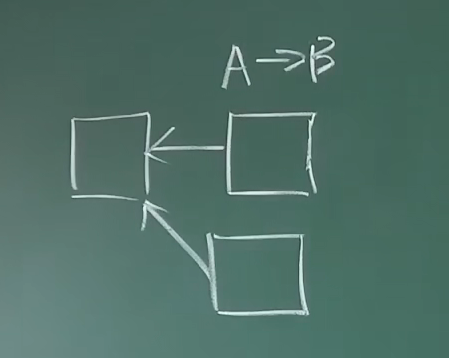 A → B